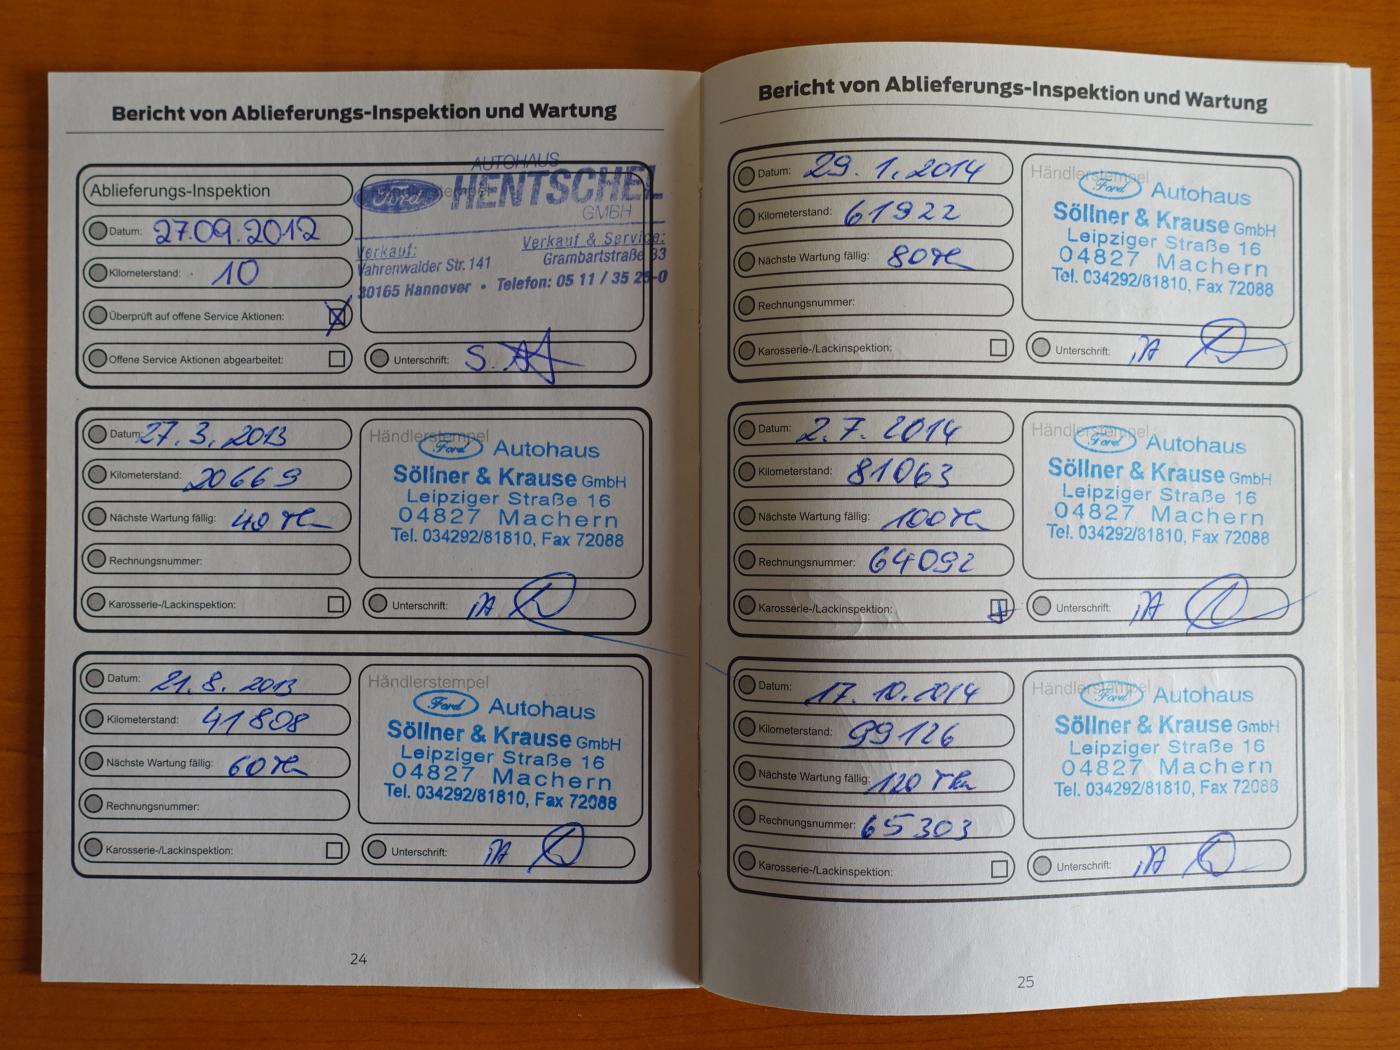 Bericht von Ablieferungs-Inspektion und Wartung
Ablieferungs-Inspektion
Datum: 27.09.2012
Kilometerstand: 10
Überprüft auf offene Service Aktionen:
Offene Service Aktionen abgearbeitet:
Händlerstempel
AUTOHAUS
Ford HENTSCHEL
GMBH
Verkauf: Verkauf & Service:
Vahrenwalder Str. 141 Grambartstraße 33
30165 Hannover • Telefon: 05 11 / 35 25-0
Unterschrift:
Datum: 27.3.2013
Kilometerstand: 20669
Nächste Wartung fällig: 40 Tkm
Rechnungsnummer:
Karosserie-/Lackinspektion:
Händlerstempel
Ford Autohaus
Söllner & Krause GmbH
Leipziger Straße 16
04827 Machern
Tel. 034292/81810, Fax 72088
Unterschrift: iA
Datum: 21.8.2013
Kilometerstand: 41808
Nächste Wartung fällig: 60 Tkm
Rechnungsnummer:
Karosserie-/Lackinspektion:
Händlerstempel
Ford Autohaus
Söllner & Krause GmbH
Leipziger Straße 16
04827 Machern
Tel. 034292/81810, Fax 72088
Unterschrift: iA
24
Bericht von Ablieferungs-Inspektion und Wartung
Datum: 29.1.2014
Kilometerstand: 61922
Nächste Wartung fällig: 80 Tkm
Rechnungsnummer:
Karosserie-/Lackinspektion:
Händlerstempel
Ford Autohaus
Söllner & Krause GmbH
Leipziger Straße 16
04827 Machern
Tel. 034292/81810, Fax 72088
Unterschrift: iA
Datum: 2.7.2014
Kilometerstand: 81063
Nächste Wartung fällig: 100 Tkm
Rechnungsnummer: 64092
Karosserie-/Lackinspektion:
Händlerstempel
Ford Autohaus
Söllner & Krause GmbH
Leipziger Straße 16
04827 Machern
Tel. 034292/81810, Fax 72088
Unterschrift: iA
Datum: 17.10.2014
Kilometerstand: 99126
Nächste Wartung fällig: 120 Tkm
Rechnungsnummer: 65303
Karosserie-/Lackinspektion:
Händlerstempel
Ford Autohaus
Söllner & Krause GmbH
Leipziger Straße 16
04827 Machern
Tel. 034292/81810, Fax 72088
Unterschrift: iA
25